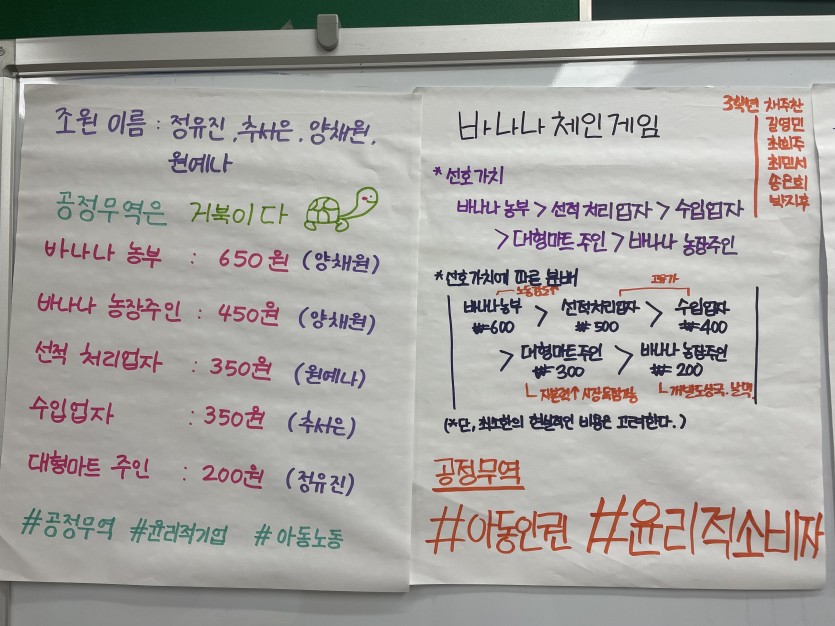 조원 이름 : 정유진, 추서은, 양채원,
원예나
공정무역은 거북이다
바나나 농부 : 650원 (양채원)
바나나 농장주인 : 450원 (양채원)
선적 처리업자 : 350원 (원예나)
수입업자 : 350원 (추서은)
대형마트 주인 : 200원 (정유진)
#공정무역 #윤리적기업 #아동노동
바나나 체인게임
3학년 채주찬
길영민
최희주
최민서
송은희
박지후
* 선호가치
바나나 농부 > 선적 처리업자 > 수입업자
> 대형마트 주인 > 바나나 농장주인
* 선호가치에 따른 분배
노동강도↑ 고응가
바나나 농부 > 선적처리업자 > 수입업자
₩600 ₩500 ₩400
> 대형마트주인 > 바나나 농장주인
₩300 ₩200
자본력↑ 시장 개발도상국.
(*단, 최소한의 현실적인 비용은 고려한다.)
공정무역
#아동인권 #윤리적소비자